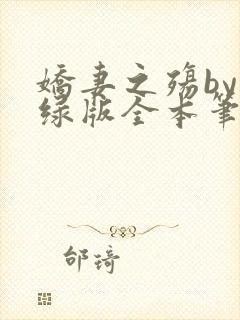 娇妻之殇by
绿版全本笔
邰琦